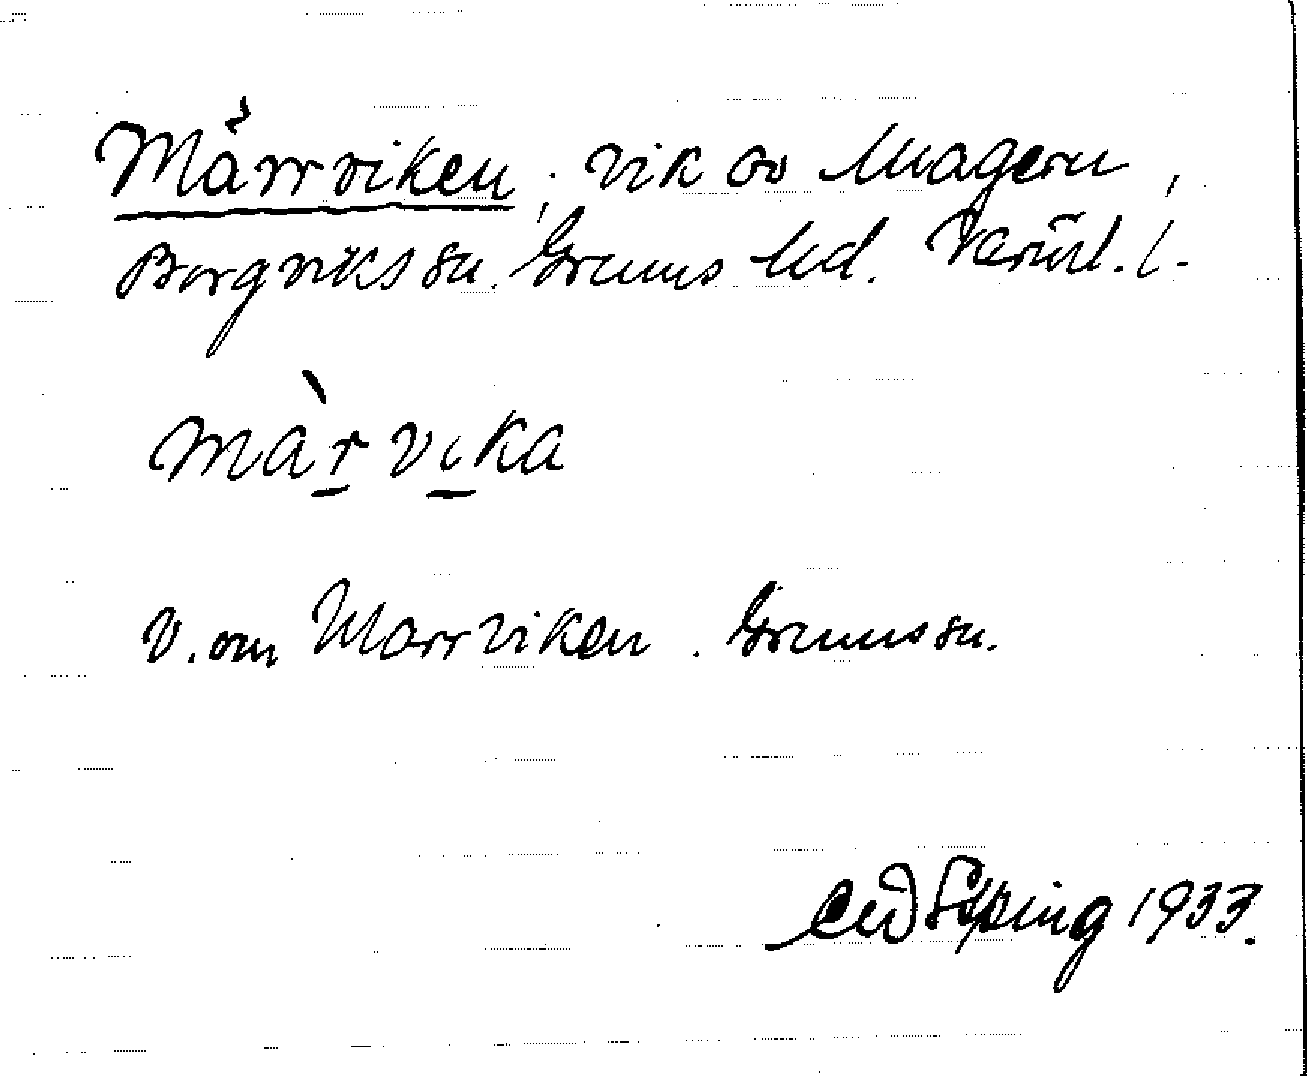 Märrviken, vik av Mvagern,
Borgviks sn. Grums hd. Värml. l.
märvika
V. om Marrviken. Grums sn.
1933.